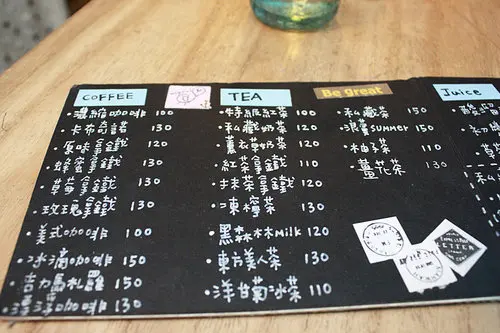 COFFEE
・濃縮咖啡 100
・卡布奇諾 130
・原味拿鐵 120
・蜂蜜拿鐵 130
・草莓拿鐵 130
・玫瑰拿鐵 130
・美式咖啡 100
・冰滴咖啡 150
瑪札羅 150
咖啡 130
TEA
・特級紅茶 100
・私藏奶茶 120
・薰衣草奶茶 120
・紅茶拿鐵 110
・抹茶拿鐵 120
・凍檸茶 130
・黑森林milk 120
・東方美人茶 130
・洋甘菊冰茶 110
Be great
・私藏茶 150
・浪漫summer 150
・柚子茶 110
・薑花茶 130
Juice
LETTER